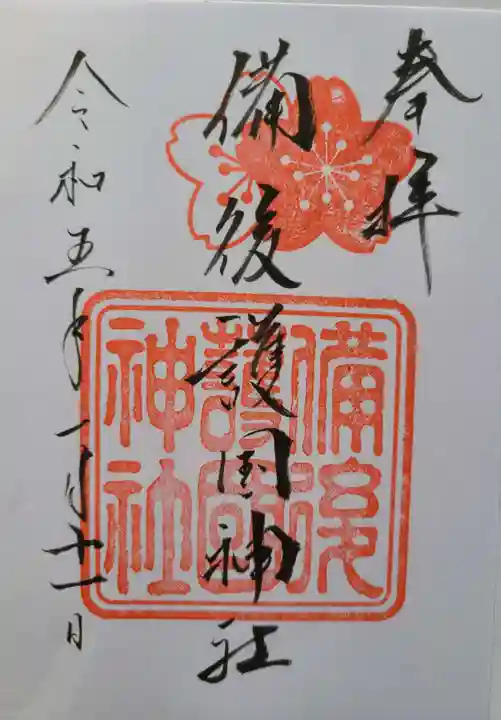 奉拝
備後護国神社
備後護國神社
令和五年一月十一日